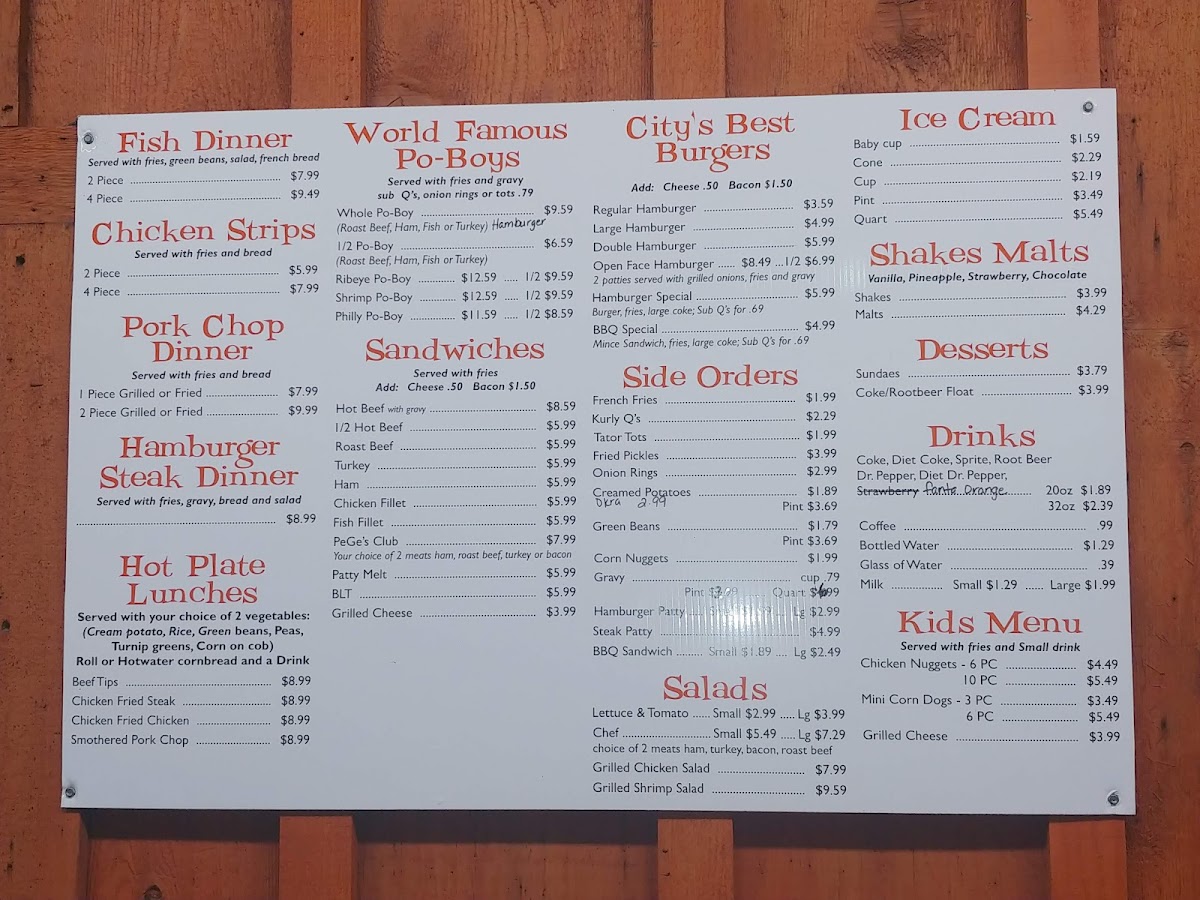 Fish Dinner
Served with fries, green beans, salad, french bread
2 Piece ........ $7.99
4 Piece ........ $9.49
Chicken Strips
Served with fries and bread
2 Piece ........ $5.99
4 Piece ........ $7.99
Pork Chop
Dinner
Served with fries and bread
1 Piece Grilled or Fried ........ $7.99
2 Piece Grilled or Fried ........ $9.99
Hamburger
Steak Dinner
Served with fries, gravy, bread and salad
........ $8.99
Hot Plate
Lunches
Served with your choice of 2 vegetables:
(Cream potato, Rice, Green beans, Peas,
Turnip greens, Corn on cob)
Roll or Hotwater cornbread and a Drink
Beef Tips ........ $8.99
Chicken Fried Steak ........ $8.99
Chicken Fried Chicken ........ $8.99
Smothered Pork Chop ........ $8.99
World Famous
Po-Boys
Served with fries and gravy
sub Q's, onion rings or tots .79
Whole Po-Boy ........ $9.59
(Roast Beef, Ham, Fish or Turkey) Hamburger
1/2 Po-Boy ........ $6.59
(Roast Beef, Ham, Fish or Turkey)
Ribeye Po-Boy ........ $12.59 ..... 1/2 $9.59
Shrimp Po-Boy ........ $12.59 ..... 1/2 $9.59
Philly Po-Boy ........ $11.59 ..... 1/2 $8.59
Sandwiches
Served with fries
Add: Cheese .50 Bacon $1.50
Hot Beef with gravy ........ $8.59
1/2 Hot Beef ........ $5.99
Roast Beef ........ $5.99
Turkey ........ $5.99
Ham ........ $5.99
Chicken Fillet ........ $5.99
Fish Fillet ........ $5.99
PeGe's Club ........ $7.99
Your choice of 2 meats ham, roast beef, turkey or bacon
Patty Melt ........ $5.99
BLT ........ $5.99
Grilled Cheese ........ $3.99
City's Best
Burgers
Add: Cheese .50 Bacon $1.50
Regular Hamburger ........ $3.59
Large Hamburger ........ $4.99
Double Hamburger ........ $5.99
Open Face Hamburger ...... $8.49 ...1/2 $6.99
2 patties served with grilled onions, fries and gravy
Hamburger Special ........ $5.99
Burger, fries, large coke; Sub Q's for .69
BBQ Special ........ $4.99
Mince Sandwich, fries, large coke; Sub Q's for .69
Side Orders
French Fries ........ $1.99
Kurly Q's ........ $2.29
Tator Tots ........ $1.99
Fried Pickles ........ $3.99
Onion Rings ........ $2.99
Creamed Potatoes ........ $1.89
Okra 2.99
Pint $3.69
Green Beans ........ $1.79
Pint $3.69
Corn Nuggets ........ $1.99
Gravy ........ cup .79
Pint Quart
Hamburger Patty ........ Lg $2.99
Steak Patty ........ $4.99
BBQ Sandwich ......... Small $1.89 .... Lg $2.49
Salads
Lettuce & Tomato ...... Small $2.99 ..... Lg $3.99
Chef ........ Small $5.49 ..... Lg $7.29
choice of 2 meats ham, turkey, bacon, roast beef
Grilled Chicken Salad ........ $7.99
Grilled Shrimp Salad ........ $9.59
Ice Cream
Baby cup ........ $1.59
Cone ........ $2.29
Cup ........ $2.19
Pint ........ $3.49
Quart ........ $5.49
Shakes Malts
Vanilla, Pineapple, Strawberry, Chocolate
Shakes ........ $3.99
Malts ........ $4.29
Desserts
Sundaes ........ $3.79
Coke/Rootbeer Float ........ $3.99
Drinks
Coke, Diet Coke, Sprite, Root Beer
Dr. Pepper, Diet Dr. Pepper,
Strawberry fanta Orange ........ 20oz $1.89
32oz $2.39
Coffee ........ .99
Bottled Water ........ $1.29
Glass of Water ........ .39
Milk ........ Small $1.29 ...... Large $1.99
Kids Menu
Served with fries and Small drink
Chicken Nuggets - 6 PC ........ $4.49
10 PC ........ $5.49
Mini Corn Dogs - 3 PC ........ $3.49
6 PC ........ $5.49
Grilled Cheese ........ $3.99